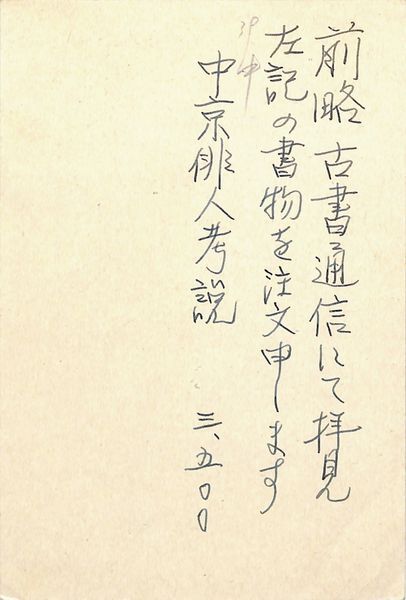 前略 古書通信にて拝見
左記の書物を注文申します
中京俳人考説 三、五〇〇